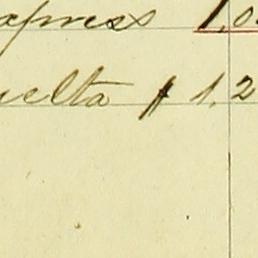 xpress 1,0
uelta $ 1,2